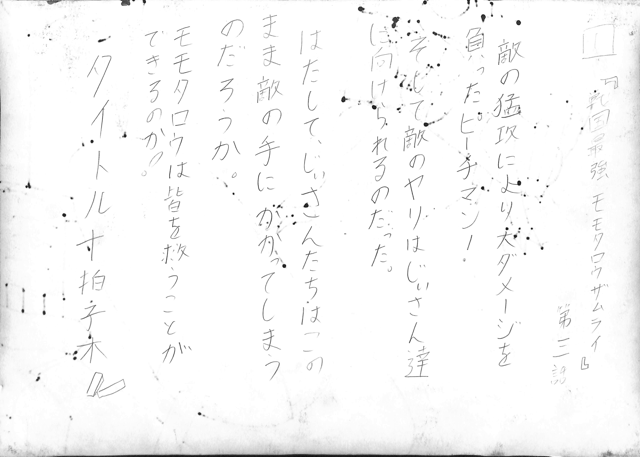 『戦国最強 モモタロウザムライ』
第三話
敵の猛攻により、大ダメージを
負ったピーチマン!
そして敵のヤリはじいさん達
に向けられるのだった。
はたして、じいさんたちはこの
まま敵の手にかかってしまう
のだろうか。
モモタロウは皆を救うことが
できるのか!。
タイトル+拍子木